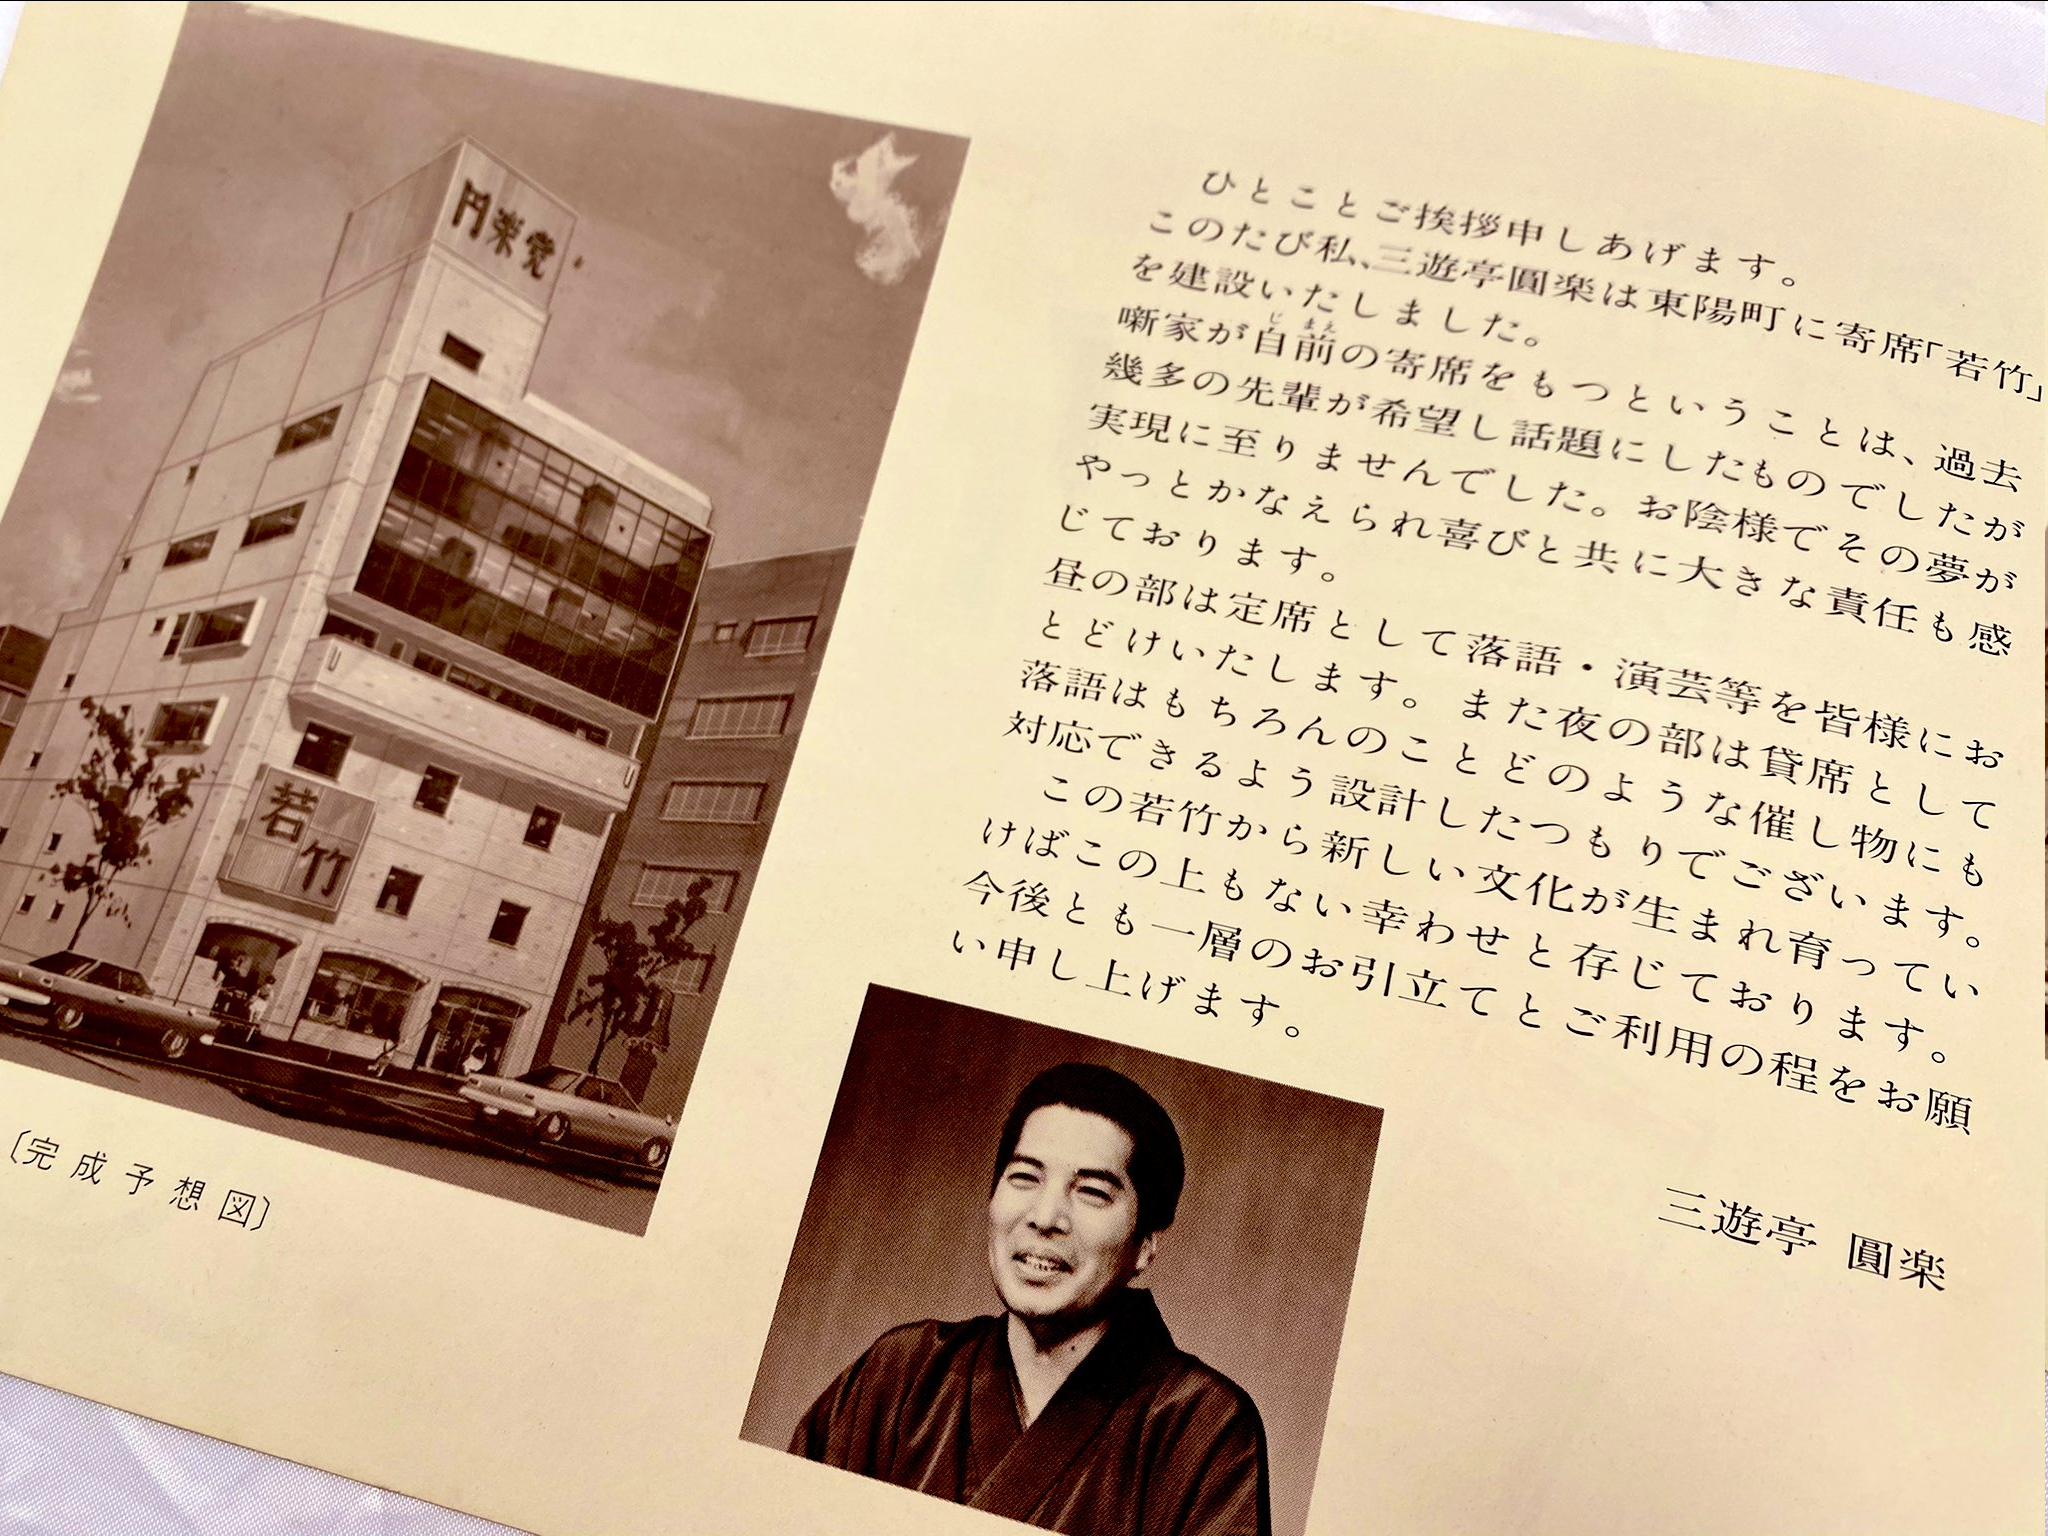 円楽党
若竹
〔完成予想図〕
ひとことご挨拶申しあげます。
このたび私、三遊亭圓楽は東陽町に寄席「若竹」
を建設いたしました。
じまえ
噺家が自前の寄席をもつということは、過去
幾多の先輩が希望し話題にしたものでしたが
実現に至りませんでした。お陰様でその夢が
やっとかなえられ喜びと共に大きな責任も感
じております。
昼の部は定席として落語・演芸等を皆様にお
とどけいたします。また夜の部は貸席として
落語はもちろんのことどのような催し物にも
対応できるよう設計したつもりでございます。
この若竹から新しい文化が生まれ育ってい
けばこの上もない幸わせと存じております。
今後とも一層のお引立てとご利用の程をお願
い申し上げます。
三遊亭 圓楽